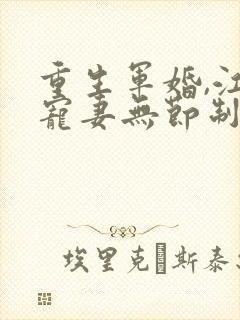 重生軍婚,江
寵妻無節制
埃里克·斯泰